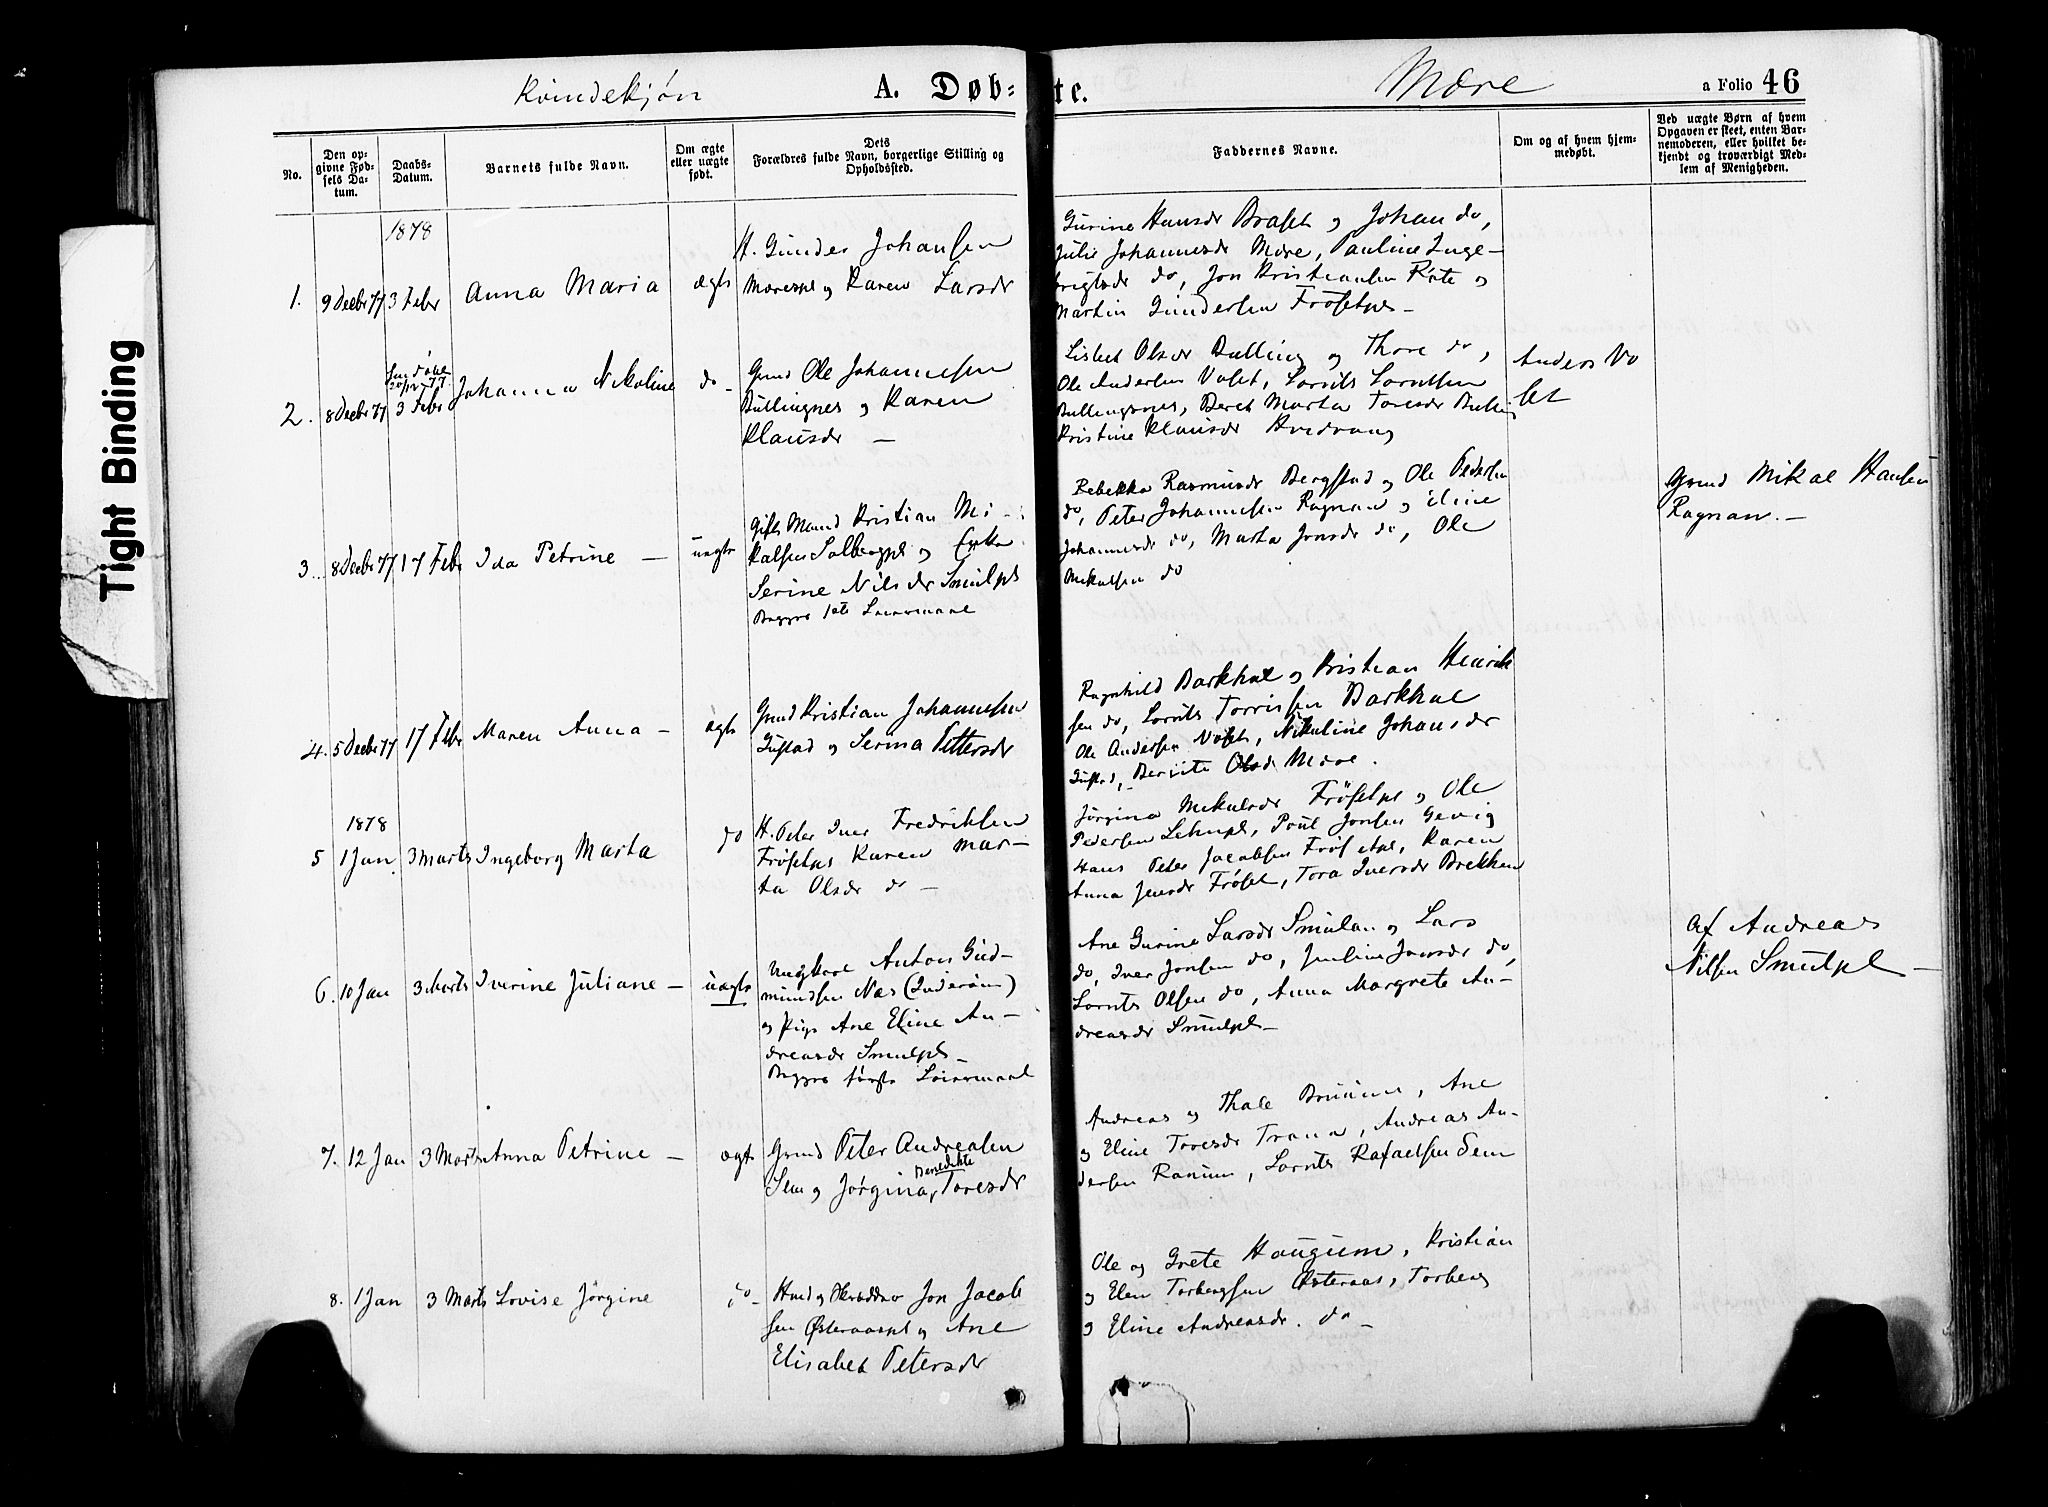 Kvindekjøn A. Døb= te. Mære a Folio 46
No.
Den op=
givne Fød=
sels Da=
tum.
Daabs=
Datum.
Barnets fulde Navn.
Om ægte
eller uægte
født.
Dets
Forældres fulde Navn, borgerlige Stilling og
Opholdssted.
Faddernes Navne.
Om og af hvem hjem=
medøbt.
Ved uægte Børn af hvem
Opgaven er skeet, enten Bar=
nemoderen, eller hvilket be=
kjendt og troværdigt Med=
lem af Menigheden.
Tight Binding
1878
1. 9 Decbr 77 3 Febr Anna Maria ægte
H. Gunder Johansen
Mærespl og Karen Larsdr
Gurine Hansdr Braset og Johan do,
Julie Johannesdr Mære, Pauline Inge-
brigtsdr do, Jon Kristiansen og
Martin Gundersen Frösetpl -
2. 8 Decbr 77 3 Febr Johanna Nikoline do -
Gmd Ole Johannesen
Bullingnes og Karen
Klausdr -
Lisbet Olsdr Bulling og Thore do,
Ole Andersen Voset, Lornts Lorntsen
Bullingsnes, Beret Marta Toresdr
Kristine Klausdr
Anders Vo
set
3. 8 Decbr 77 17 Febr Ida Petrine - uægte
Gift Mand Kristian Mi-
kalsen Solbergpl og Enke
Serine Nilsdr Smulpl
Begges 1ste Leiermaal
Rebekka Rasmusdr Bergstad og Ole Pedersen
do, Peter Johannesen Ragnan og Eline
Johannesdr do, Marta Jonsdr do, Ole
Mikalsen do
Gmd Mikal Hansen
Ragnan. -
4. 5 Decbr 77 17 Febr Maren Anna - ægte
Gmd Kristian Johannesen
Gustad og Serina Pettersdr
Ragnhild Barkhal og Kristian Henrik
sen do, Lornts Torrissen Barkhal
Ole Andersen Voset, Nikoline Johansdr
Gustad, Beriite Olsdr Mære.
1878
5 1 Jan 3 Marts Ingeborg Marta do
H. Peter Iver Fredriksen
Frösetpl Karen Mar-
ta Olsdr do -
Jörgina Mikalsdr Frösetpl og Ole
Pedersen, Poul Jonsen Gevig
Hans Peter Jacobsen Frösetpl, Karen
Anna Jensdr Fröset, Tora Iversdr Brekken
6. 10 Jan 3 Marts Iverine Juliane - uægte
Ungkarl Anton Gud-
mundsen Næs (Inderøen)
og Pige Ane Eline An-
dreasdr Smulpl -
Begges første Leiermaal
Ane Gurine Larsdr Smulan og Lars
do, Iver Jonsen do, Jonsdr do,
Lornts Olsen do, Anna Margrete An-
dreasdr Smulpl -
Af Andreas
Nilsen Smulpl -
7. 12 Jan 3 Marts Anna Petrine - ægte
Gmd Peter Andreasen
Sem og Jørgina Benedikte Toresdr
Andreas og Thale, Ane
og Eline Toresdr Trana, Andreas An-
dersen Ranum, Lornts Rafaelsen Sem
8. 1 Jan 3 Marts Lovise Jörgine do -
Hmd og Skrædder Jon Jacob
sen Østeraaspl og Ane
Elisabet Petersdr
Ole og Grete Haugum, Kristian
og Elen Torbergsen Østeraas, Torberg
og Eline Andreasdr. do -